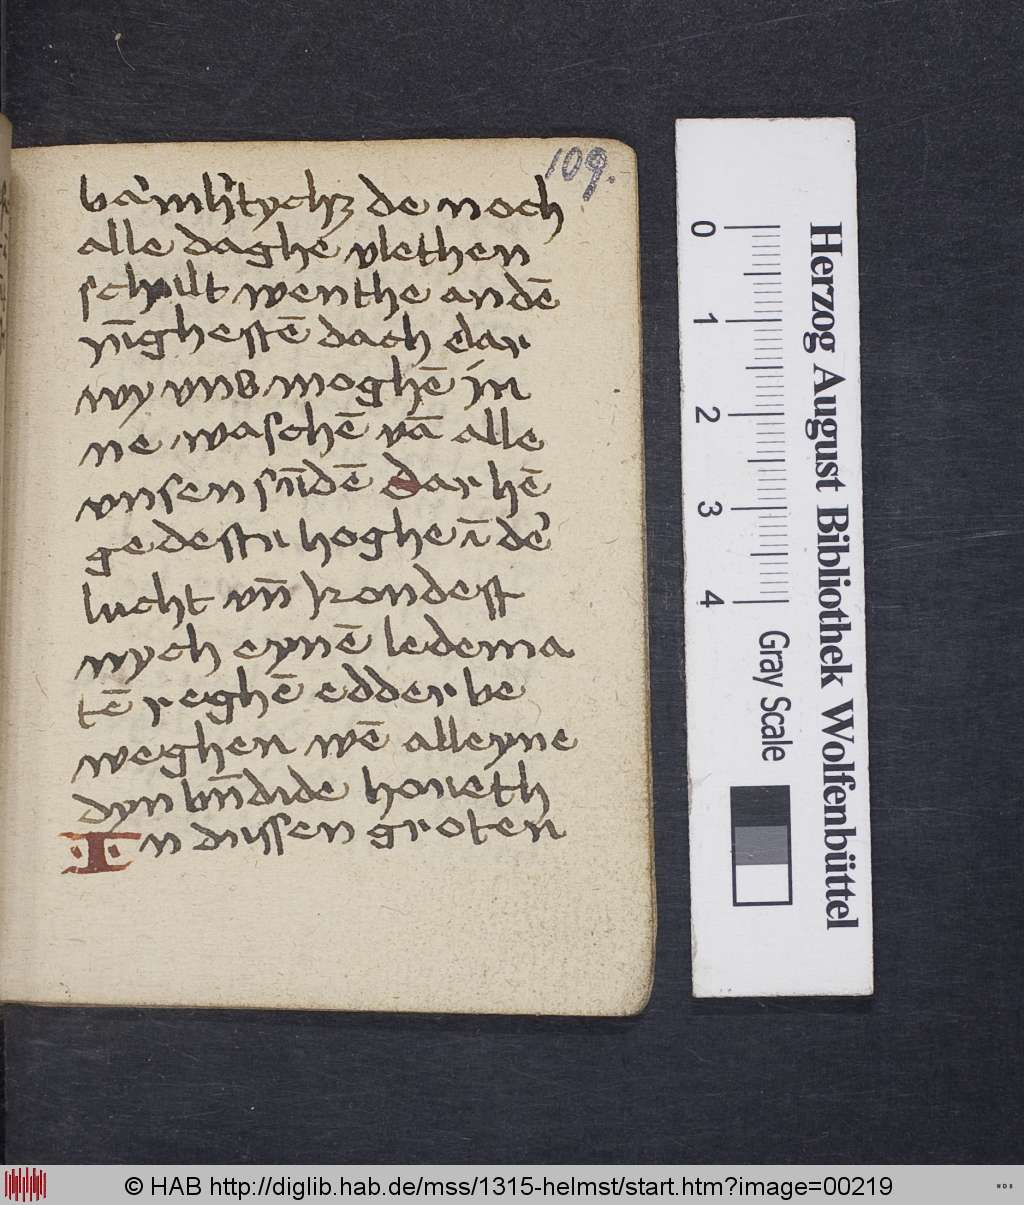 109.
bar̃mh̃tych de noch
alle daghe vlethen
schult wenthe an dē
nīghestē dach dar
wy vns moghē in
ne waschē vā alle
vnsen sūdē dar hē
gedestu hoghe ī de͛
lucht vn̄ kondest
nych eynē ledema
tē reghē edder be
weghen wē alleyne
dyn bn̄dide houeth
In dussen groten
Herzog August Bibliothek Wolfenbüttel
0
1
2
3
4
Gray Scale
© HAB http://diglib.hab.de/mss/1315-helmst/start.htm?image=00219